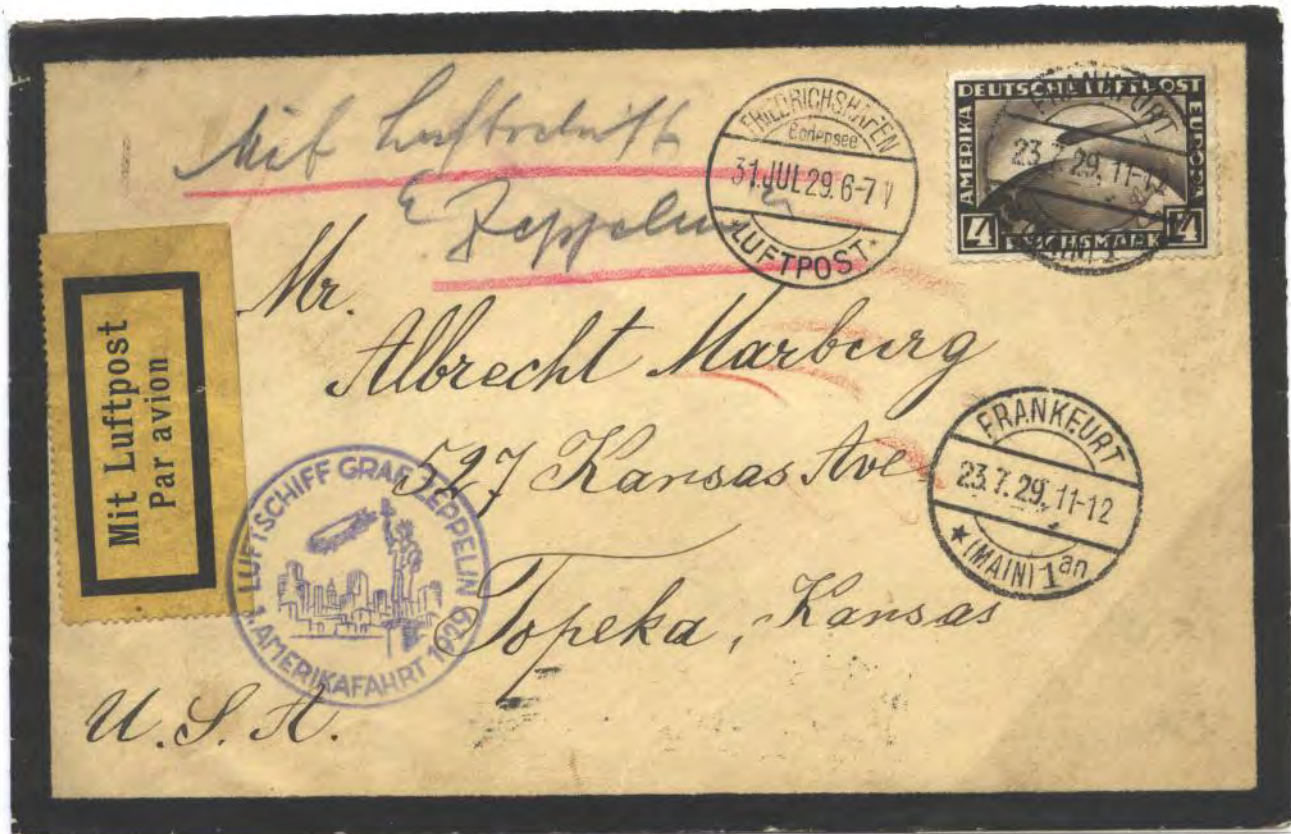 Mit Luftschiff
Zeppelin
FRIEDRICHSHAFEN
Bodensee
31.JUL 29. 6-7
*LUFTPOST*
DEUTSCHE LUFTPOST
AMERIKA
EUROPA
4
REICHSMARK
4
FRANKFURT
23.7.29. 11-12
(MAIN) 1
Mit Luftpost
Par avion
Mr.
Albrecht Marburg
527 Kansas Ave
Topeka, Kansas
U. S. A.
LUFTSCHIFF GRAF ZEPPELIN
1. AMERIKAFAHRT 1929
FRANKFURT
23.7.29. 11-12
* (MAIN) 1 an